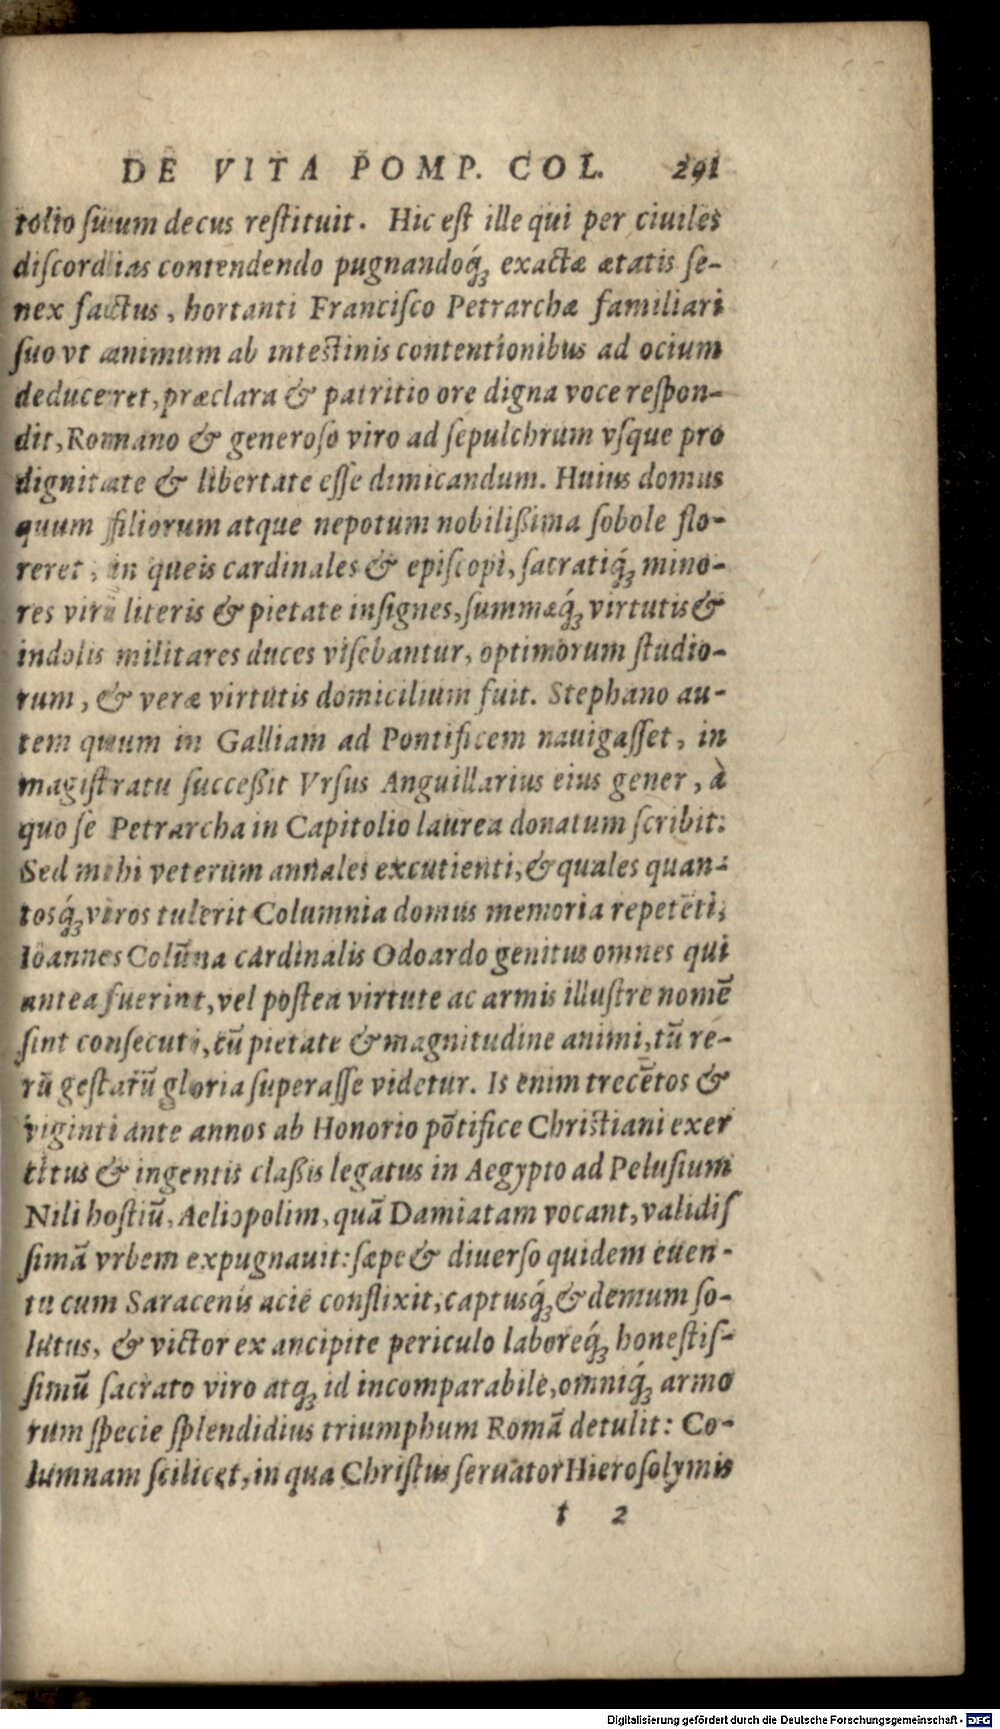 DE VITA POMP. COL. 291
tolio suum decus restituit. Hic est ille qui per ciuiles
discordias contendendo pugnandoq́ꝫ exactæ ætatis se-
nex factus, hortanti Francisco Petrarchæ familiari
suo vt animum ab intestinis contentionibus ad ocium
deduceret, præclara & patritio ore digna voce respon-
dit, Romano & generoso viro ad sepulchrum vsque pro
dignitate & libertate esse dimicandum. Huius domus
quum filiorum atque nepotum nobilißima sobole flo-
reret, in queis cardinales & episcopi, sacratiq́ꝫ mino-
res viri literis & pietate insignes, summæq́ꝫ virtutis &
indolis militares duces visebantur, optimorum studio-
rum, & veræ virtutis domicilium fuit. Stephano au-
tem quum in Galliam ad Pontificem nauigasset, in
magistratu succeßit Vrsus Anguillarius eius gener, à
quo se Petrarcha in Capitolio laurea donatum scribit:
Sed mihi veterum annales excutienti, & quales quan-
tosq́ꝫ viros tulerit Columnia domus memoria repetẽti,
Ioannes Colũna cardinalis Odoardo genitus omnes qui
antea fuerint, vel postea virtute ac armis illustre nomẽ
sint consecuti, cũ pietate & magnitudine animi, tũ re-
rũ gestarũ gloria superasse videtur. Is enim trecẽtos &
viginti ante annos ab Honorio põtifice Christiani exer
citus & ingentis claßis legatus in Aegypto ad Pelusium
Nili hostiũ, Aeliopolim, quã Damiatam vocant, validis
simã vrbem expugnauit: sæpe & diuerso quidem euen-
tu cum Saracenis acie conflixit, captusq́ꝫ & demum so-
lutus, & victor ex ancipite periculo laboreq́ꝫ honestis-
simũ sacrato viro atqꝫ id incomparabile, omniq́ꝫ armo
rum specie splendidius triumphum Romã detulit: Co-
lumnam scilicet, in qua Christus seruator Hierosolymis
t 2
Digitalisierung gefördert durch die Deutsche Forschungsgemeinschaft - DFG